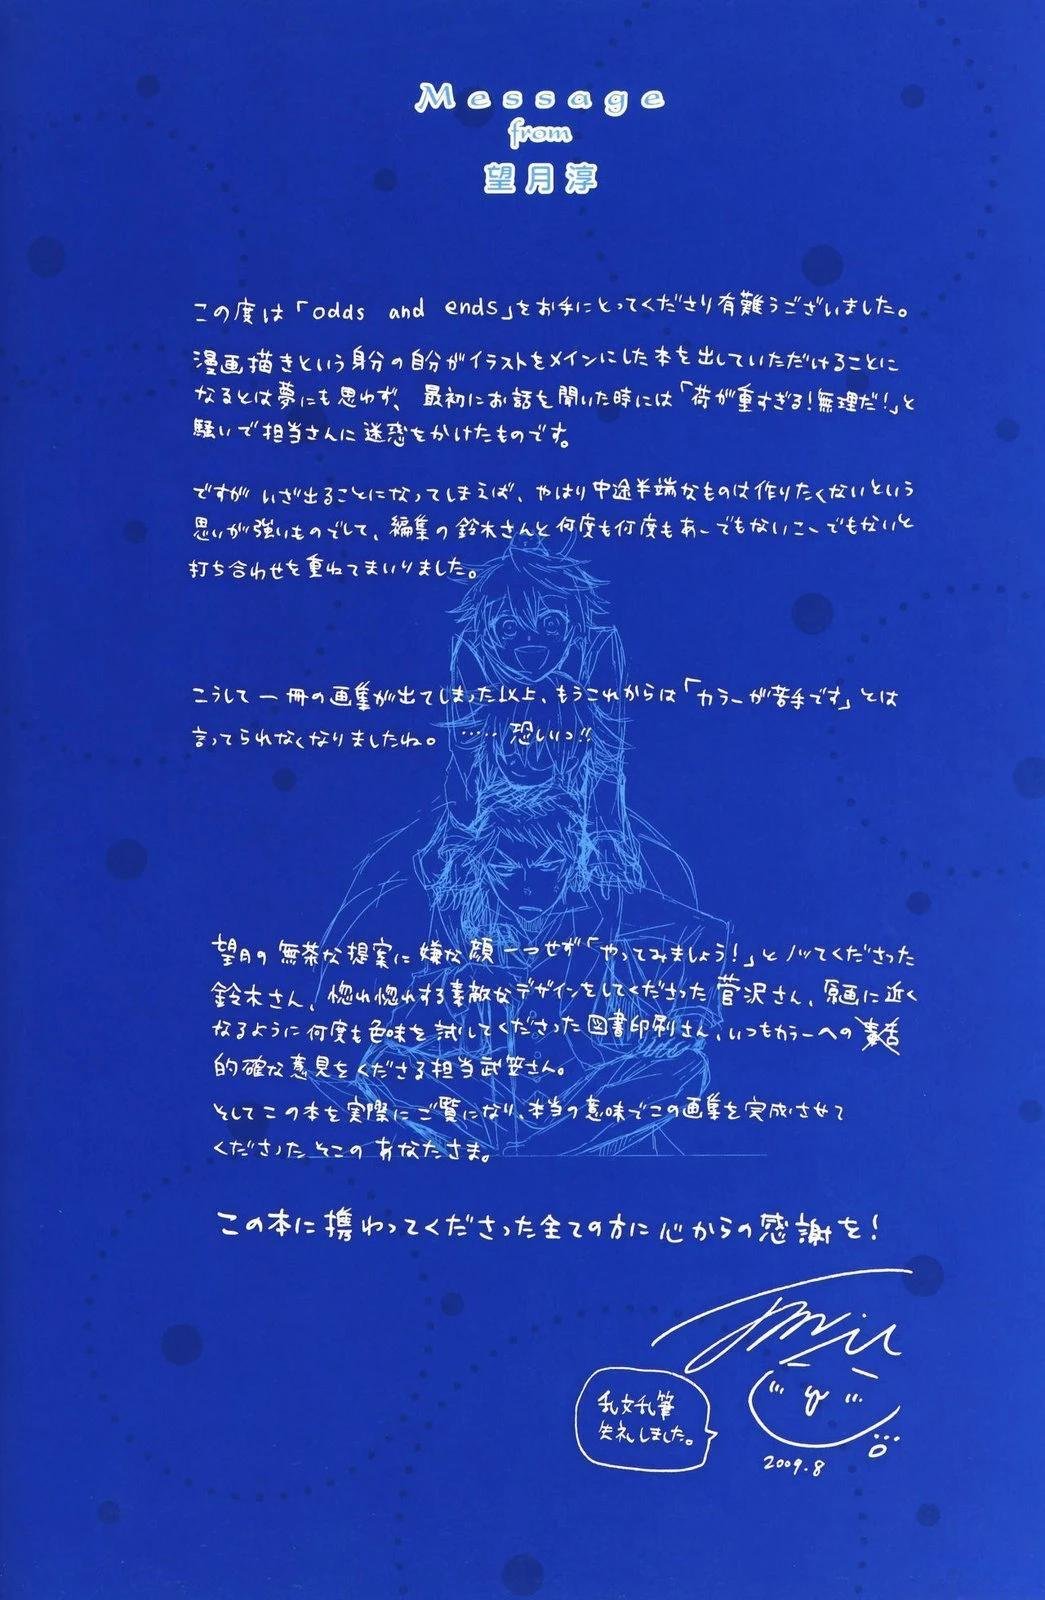 Message
from
望月淳
この度は「odds and ends」をお手にとってくださり有難うございました。
漫画描きという身分の自分がイラストをメインにした本を出していただけることに
なるとは夢にも思わず、最初にお話を聞いた時には「荷が重すぎる!無理だ!」と
騒いで担当さんに迷惑をかけたものです。
ですが いざ出ることになってしまえば、やはり中途半端なものは作りたくないという
思いが強いものでして、編集の鈴木さんと何度も何度もあーでもないこーでもないと
打ち合わせを重ねてまいりました。
こうして一冊の画集が出てしまった以上、もうこれからは「カラーが苦手です」とは
言ってられなくなりましたね。……恐しいっ!!
望月の無茶な提案に嫌な顔一つせず「やってみましょう!」とノッてくださった
鈴木さん、惚れ惚れする素敵なデザインをしてくださった菅沢さん、原画に近く
なるように何度も色味を試してくださった図書印刷さん、いつもカラーへの
的確な意見をくださる担当武笠さん。
そしてこの本を実際にご覧になり、本当の意味でこの画集を完成させて
くださったそこのあなたさま。
この本に携わってくださった全ての方に心からの感謝を!
乱文乱筆
失礼しました。
2009.8